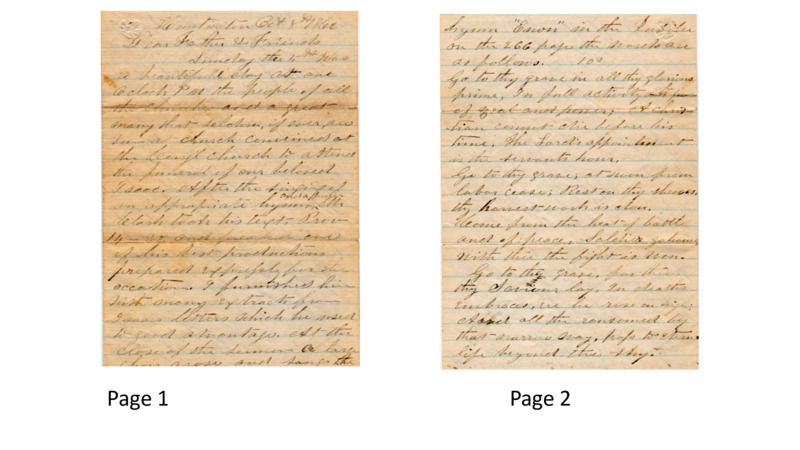 Huntington Oct 8th 1862
Dear Father & Friends
Sunday the 5th was
a beautiful day at one
Oclock P.M. the people of all
the churches and a great
many that seldom, if ever, are
in a church convened at
the Congl church to attend
the funeral of our beloved
Isaac. After the singing of
an appropriate hymn,
Clark took his text Prov
14 – 32 and
of his best productions
prepared expressly for the
occasion. I furnished him
with many extracts from
letters which he used
to good advantage. At the
close of the sermon a large
choir arose and sang the
hymn "Enon" in the
on the 266 page the words are
as follows. 10s
Go to thy grave in all thy glorious
prime, In full activity
of zeal and power; A chris-
tian cannot die before his
time, The Lord's appointment
is the servants hour.
Go to thy grave; at noon from
labor cease; Rest on thy sheaves,
thy harvest work is done.
Come from the heat of battle
and of peace, Soldier go home;
With thee the fight is won.
Go to thy grave, for there
thy Saviour lay, In deaths
embraces, ere he rose on high;
And all the ransomed by
that narrow way, pass to
life beyond the sky."
Page 1
Page 2